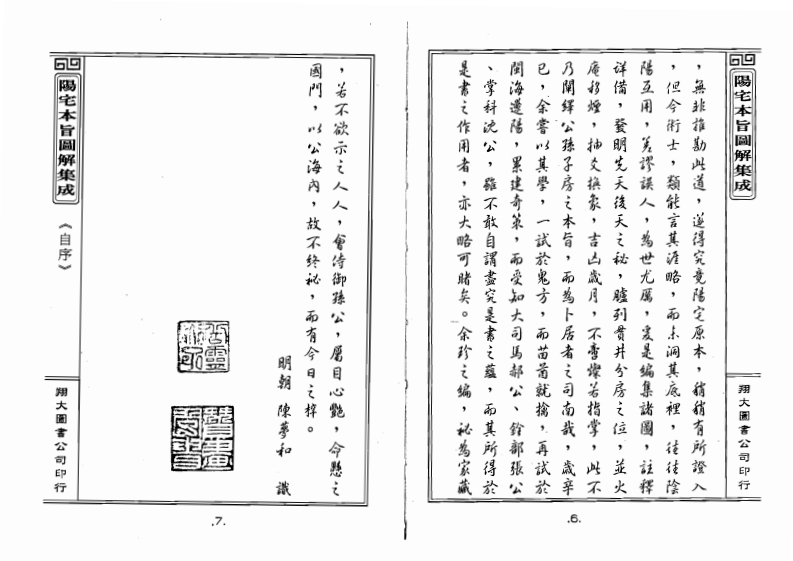 陽宅本旨圖解集成
翔大圖書公司印行
，無非推勘此道，遂得究竟陽宅原本，稍稍有所證入
，但今術士，類能言其涯略，而未洞其底裡，往往陰
陽互用，差謬誤人，為世尤厲，爰是編集諸圖，註釋
詳備，發明先天後天之秘，臚列貫井分房之位，並火
庵移煙，抽爻換象，吉凶歲月，不啻燦若指掌，此不
乃闡繹公孫子房之本旨，而為卜居者之司南哉，歲辛
已，余嘗以其學，一試於鬼方，而苗酋就擒，再試於
閩海遭陽，累建奇策，而受知大司馬郝公、銓部張公
、掌科沈公，雖不敢自謂盡究是書之蘊，而其所得於
是書之作用者，亦大略可睹矣。余珍之編，秘為家藏
.6.
，若不欲示之人人，會侍御孫公，屬目心艷，命懸之
國門，以公海內，故不終秘，而有今日之梓。
明朝 陳夢和 識
陽宅本旨圖解集成
《自序》
翔大圖書公司印行
.7.